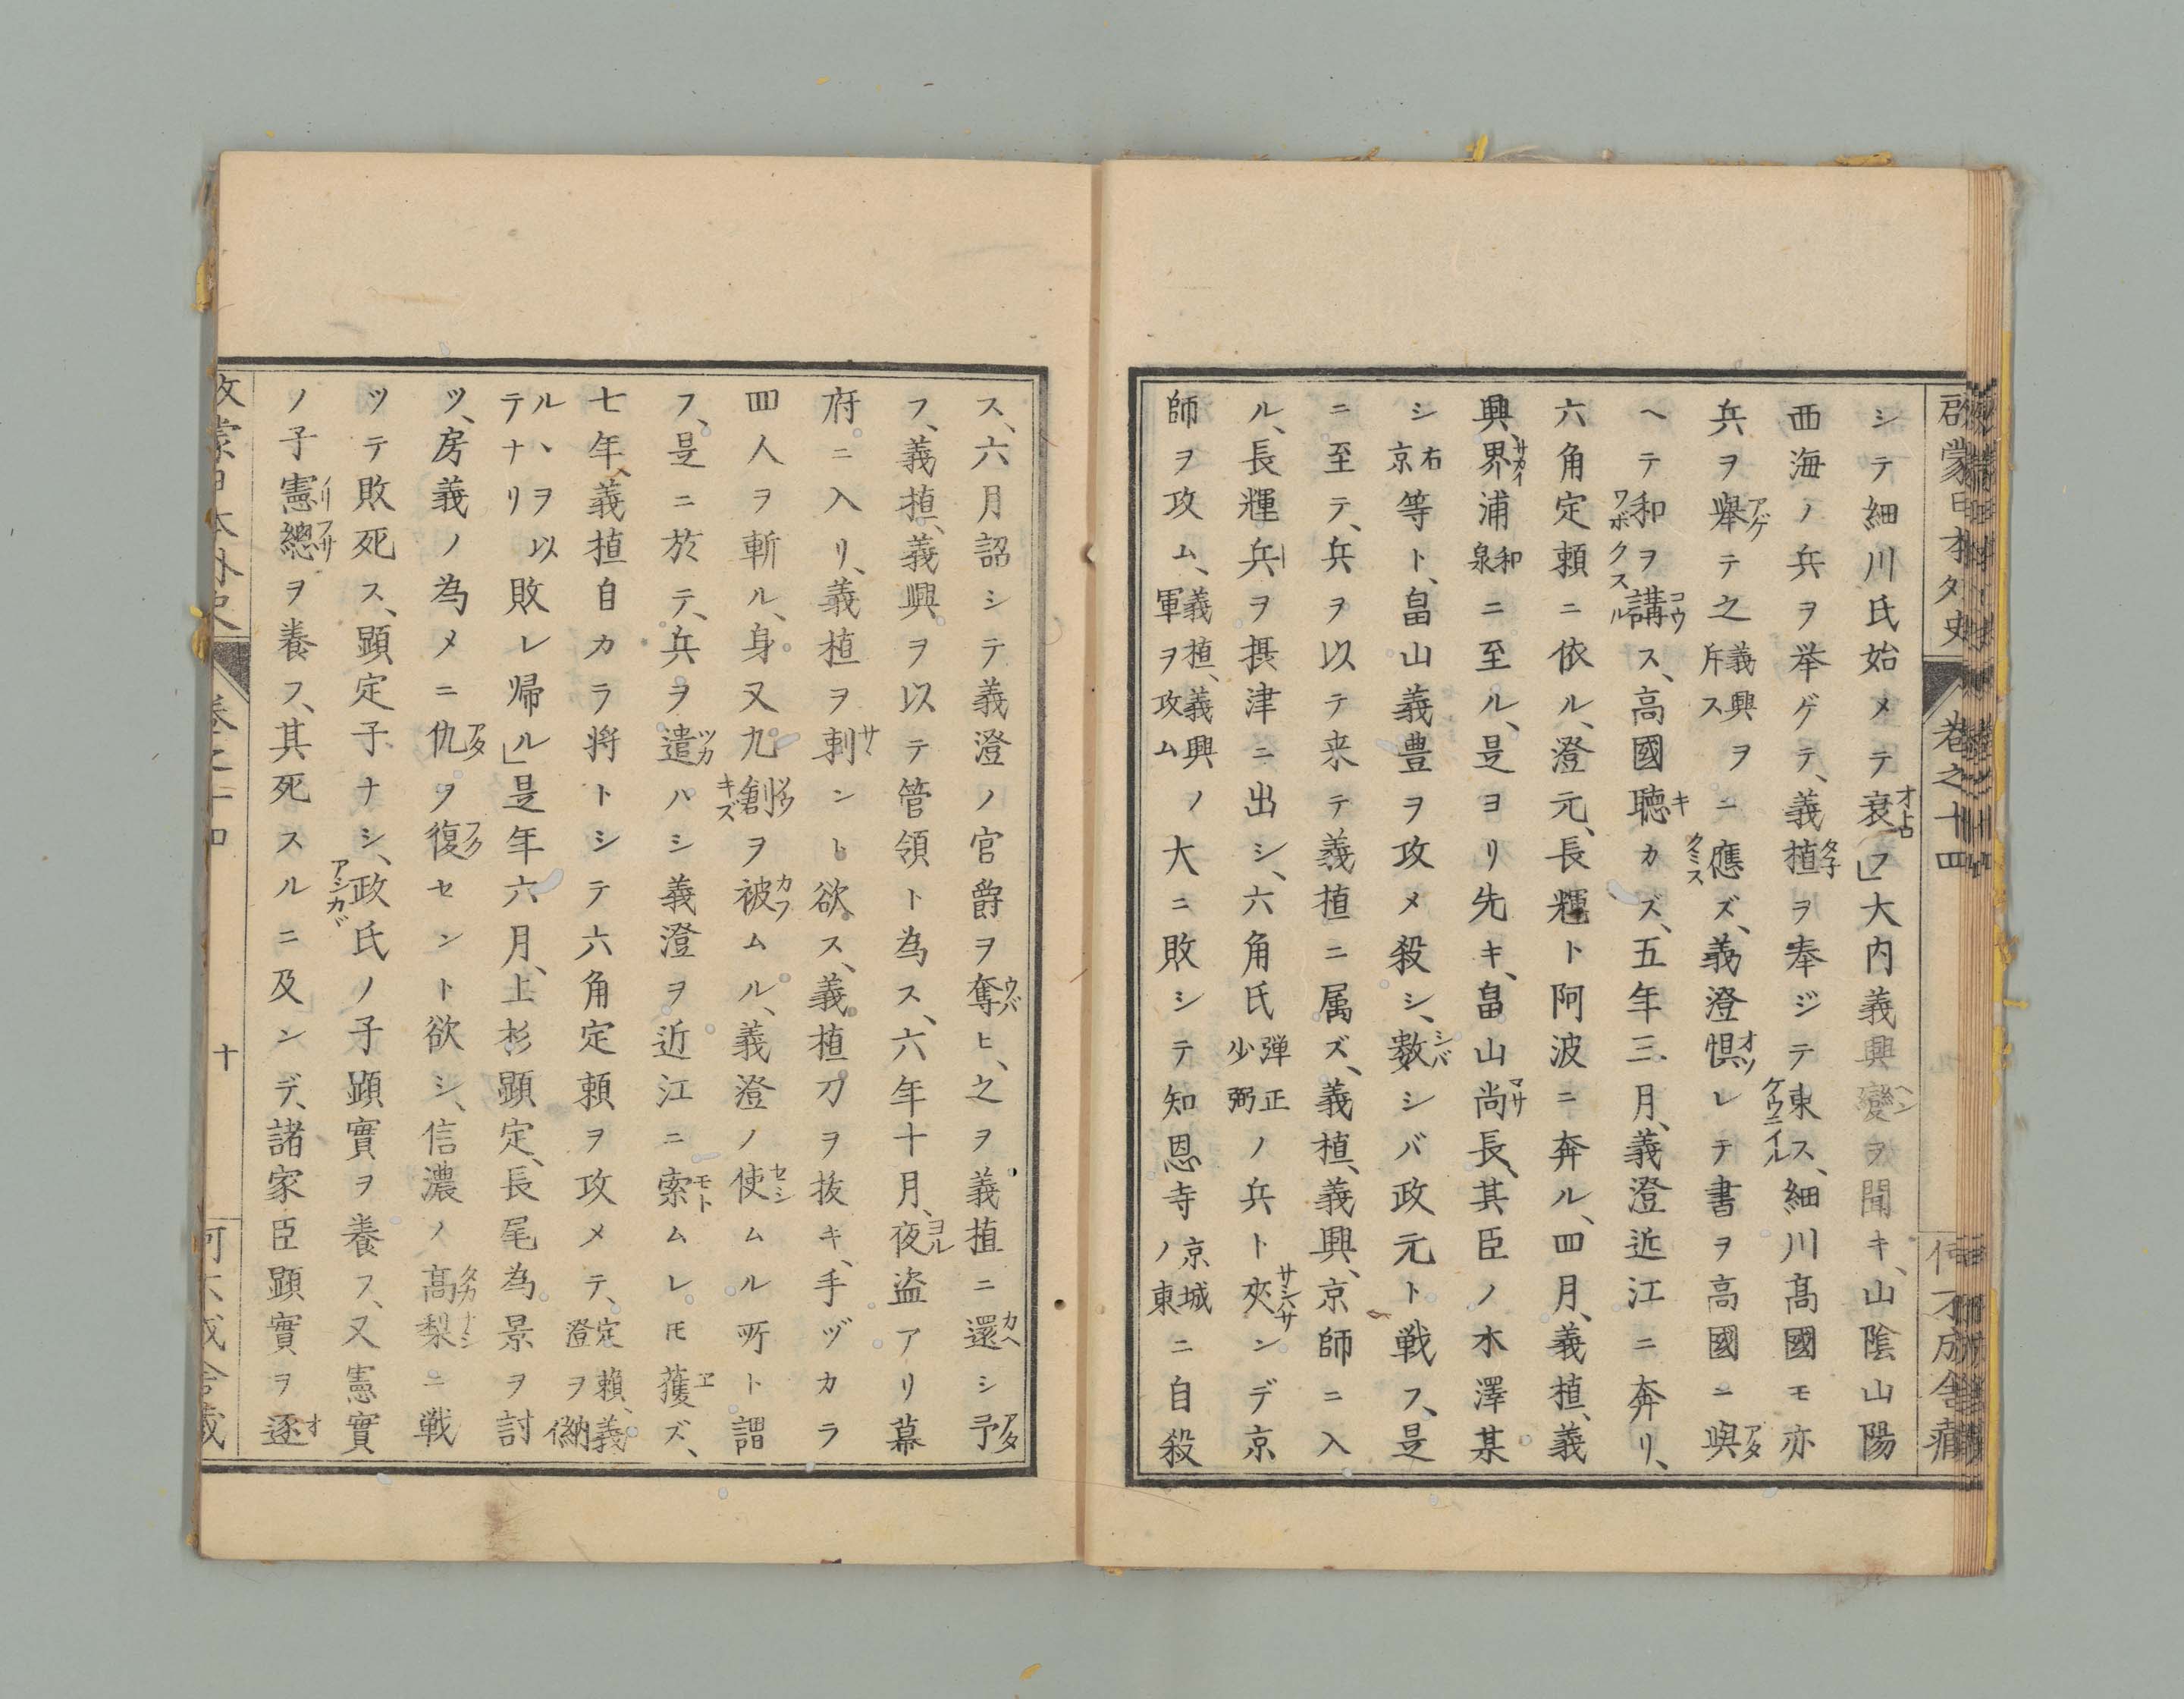 啓蒙日本外史 巻之十四
シテ細川氏始メテ衰フ」大内義興變ヲ聞キ、山陰山陽
西海ノ兵ヲ挙ゲテ、義植ヲ奉ジテ東ス、細川髙國モ亦
兵ヲ擧テ之義興ヲ斥スニ應ズ、義澄惧レテ書ヲ高國ニ與
ヘテ和ヲ講ス、高國聴カズ、五年三月、義澄近江ニ奔リ、
六角定頼ニ依ル、澄元、長輝ト阿波ニ奔ル、四月、義植、義
興、界浦和泉ニ至ル、是ヨリ先キ、畠山尚長、其臣ノ木澤某
シ右京等ト、畠山義豊ヲ攻メ殺シ、數シバ政元ト戦フ、是
ニ至テ、兵ヲ以テ来テ義植ニ属ズ、義植、義興、京師ニ入
ル、長輝兵ヲ摂津ニ出シ、六角氏弾正少弼ノ兵ト夾ンデ京
師ヲ攻ム、義植、義興軍ヲ攻ムノ大ニ敗シテ知恩寺京城ノ東ニ自殺
ス、六月詔シテ義澄ノ官爵ヲ奪ヒ、之ヲ義植ニ還シ予
フ、義植、義興ヲ以テ管領ト為ス、六年十月、夜盗アリ幕
府ニ入リ、義植ヲ刺ント欲ス、義植刀ヲ抜キ、手ヅカラ
四人ヲ斬ル、身又九創ヲ被ムル、義澄ノ使ムル所ト謂
フ、是ニ於テ、兵ヲ遣ハシ義澄ヲ近江ニ索ムレモ獲ズ、
七年、義植自カラ将トシテ六角定頼ヲ攻メテ、定頼、義澄ヲ納
ルヽヲ以テナリ敗レ帰ル」是年六月、上杉顕定、長尾為景ヲ討
ツ、房義ノ為メニ仇ヲ復セント欲シ、信濃ノ髙梨ニ戦
ツテ敗死ス、顕定子ナシ、政氏ノ子顕實ヲ養フ、又憲實
ノ子憲總ヲ養フ、其死スルニ及ンデ、諸家臣顕實ヲ逐
十